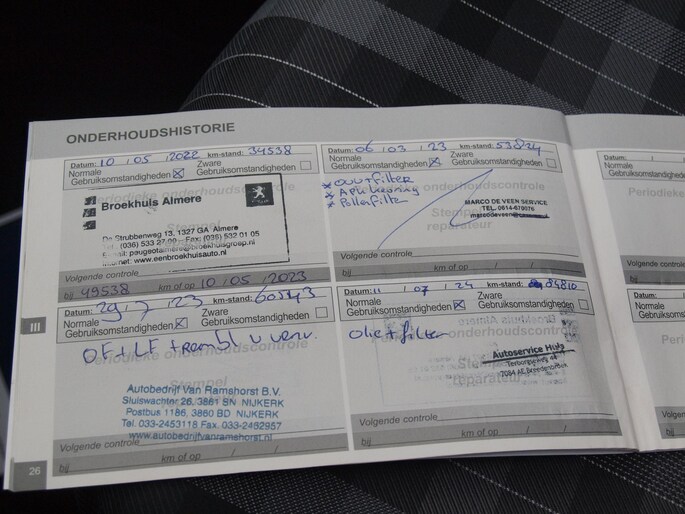 ONDERHOUDSHISTORIE
Datum: 10 / 05 / 2022 km-stand: 34538
Normale Gebruiksomstandigheden Zware Gebruiksomstandigheden
Periodieke onderhoudscontrole
Broekhuis Almere
De Strubbenweg 13, 1327 GA Almere
Tel. (036) 533 27 00 Fax: (036) 532 01 05
Email: paugeotalmere@broekhuisgroep.nl
Internet: www.eenbroekhuisauto.nl
Volgende controle
bij 49538 km of op 10 / 05 / 2023
Datum: 06 / 03 / 23 km-stand: 53824
Normale Gebruiksomstandigheden Zware Gebruiksomstandigheden
onderhoudscontrole
* 
* APK keuring
* Pollenfilter
Stempel
reparateur
MARCO DE VEEN SERVICE
TEL. 0614-678076
Volgende controle
bij km of op / /
Datum: 29 / 7 / 23 km-stand: 60343
Normale Gebruiksomstandigheden Zware Gebruiksomstandigheden
Periodieke onderhoudscontrole
OF + LF + remblu verv.
Stempel
Autobedrijf Van Ramshorst B.V.
Sluiswachter 26, 3861 SN NIJKERK
Postbus 1186, 3860 BD NIJKERK
Tel. 033-2453118 Fax. 033-2462957
www.autobedrijfvanramshorst.nl
Volgende controle
bij km of op / /
Datum: 11 / 07 / 24 km-stand: 84810
Normale Gebruiksomstandigheden Zware Gebruiksomstandigheden
onderhoudscontrole
Olie + filter
Stempel
reparateur
Autoservice Huls
Terborgseweg 44
7084 AE Breedenbroek
Volgende controle
bij km of op / /
III
26
Datum: /
Normale
Gebruiksomst
Periodie
Volgende contro
bij
Datum: /
Normale
Gebruiksoms
Volgende cont
bij